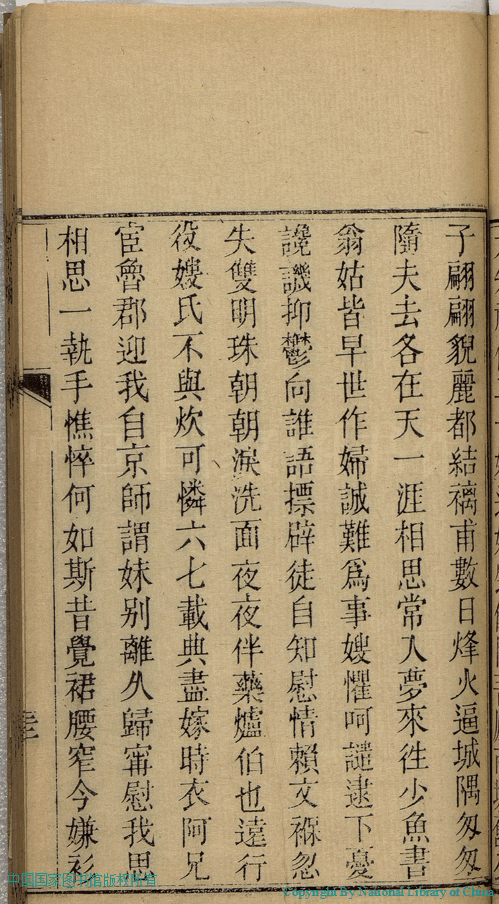 子翩翩貌麗都結褵甫數日烽火逼城隅匆匆
隨夫去各在天一涯相思常入夢來往少魚書
翁姑皆早世作婦誠難為事嫂懼呵譴逮下憂
讒譏抑鬱向誰語摽辟徒自知慰情賴文褓忽
失雙明珠朝朝淚洗面夜夜伴藥爐伯也遠行
役嫂氏不與炊可憐六七載典盡嫁時衣阿兄
宦魯郡迎我自京師謂妹别離久歸甯慰我思
相思一執手憔悴何如斯昔覺裙腰窄今嫌衫
中国国家图书馆版权所有
Copyright By National Library of China